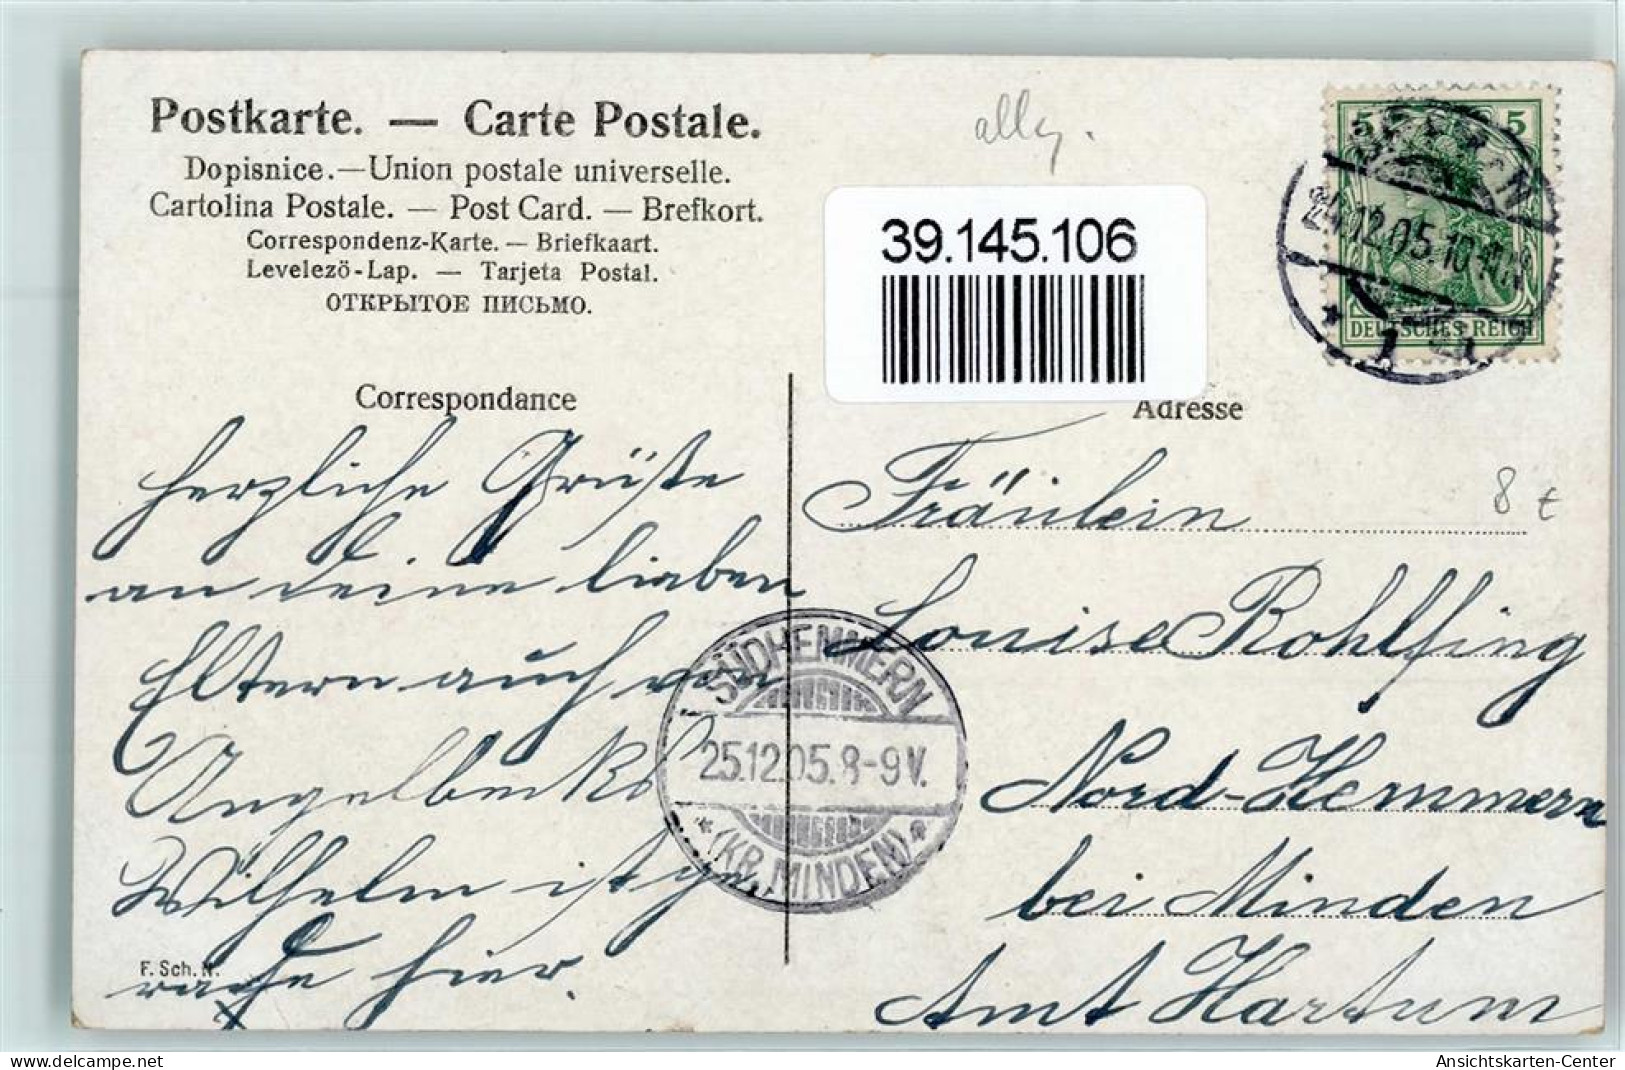 Postkarte. — Carte Postale.
Dopisnice.—Union postale universelle.
Cartolina Postale. — Post Card. — Brefkort.
Correspondenz-Karte. — Briefkaart.
Levelező-Lap. — Tarjeta Postal.
ОТКРЫТОЕ ПИСЬМО.
Correspondance
herzliche Grüße
an deine lieben
Eltern auch von
Angelbecks
Wilhelm ist ge-
rade hier.
F. Sch. N.
allg.
39.145.106
5 5
DEUTSCHES REICH
24.12.05.10-11
1
Adresse
Fräulein
8 €
Louise Rohlfing
Nord-Hemmern
bei Minden
Amt Hartum
SÜDHEMMERN
25.12.05.8-9V.
* (KR. MINDEN) *
delcampe.net
Ansichtskarten-Center